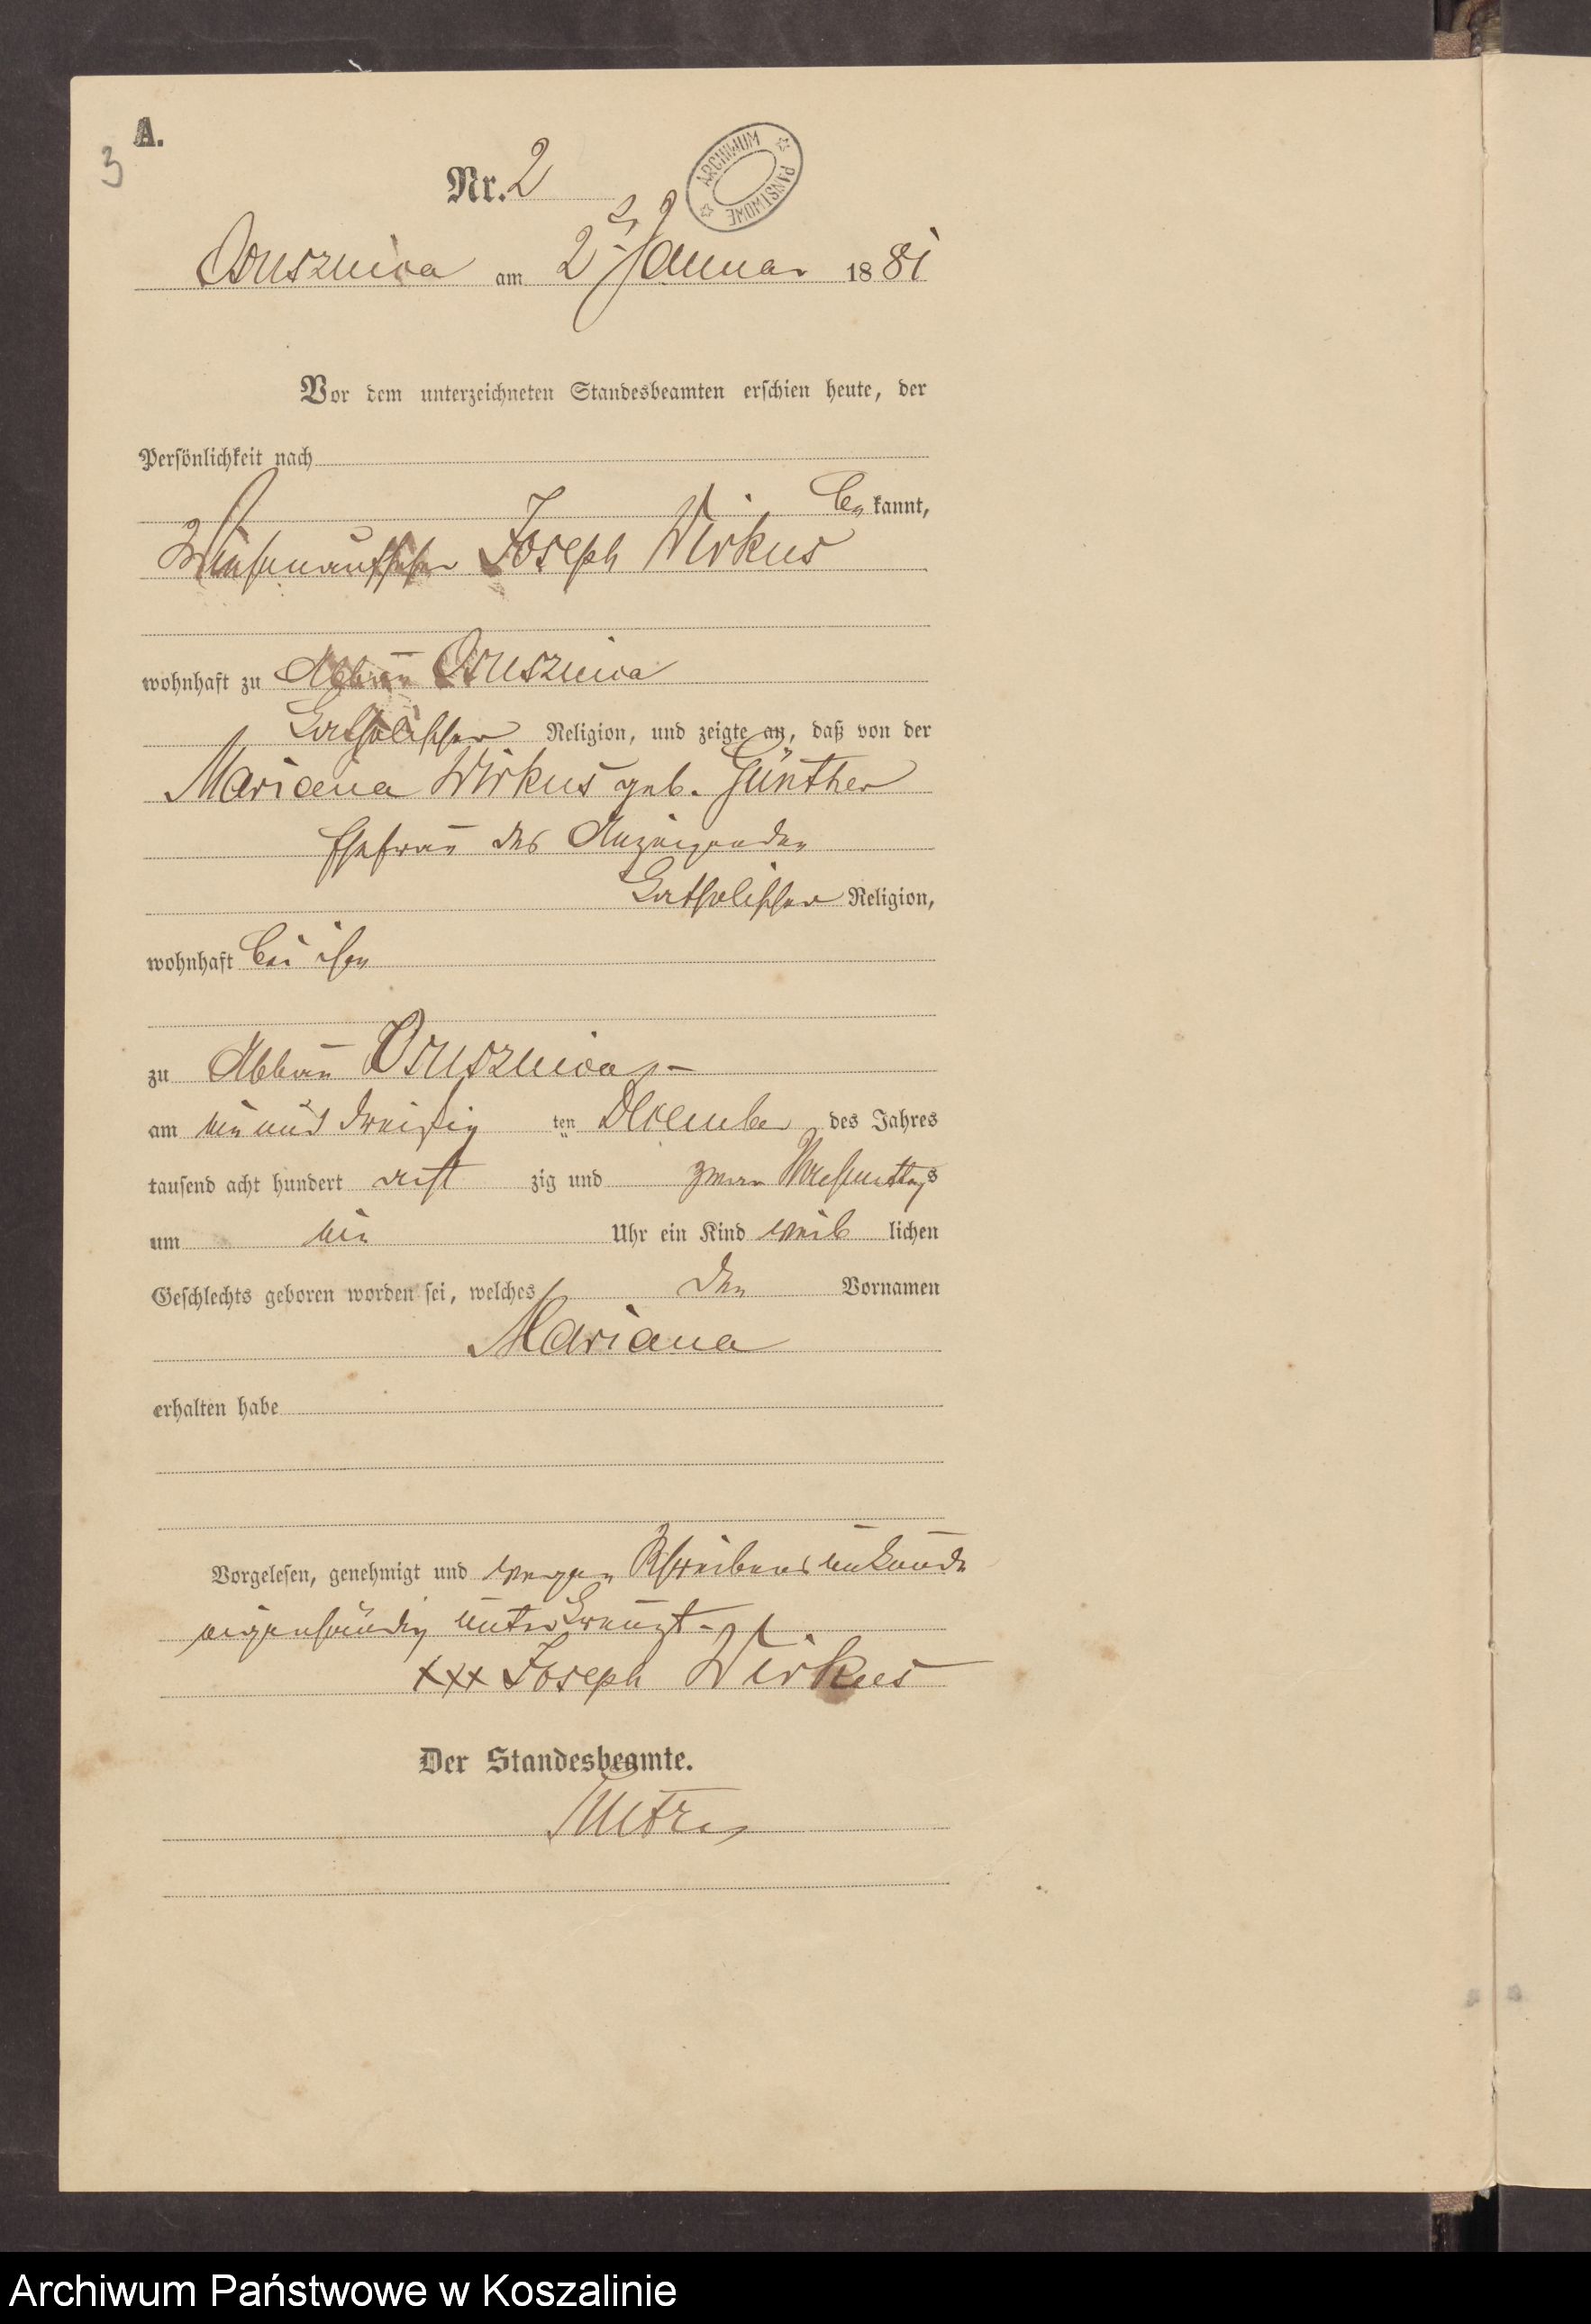 A.
3
Nr. 2
ARCHIWUM PAŃSTWOWE
Ossusznica am 2t Januar 1881
Vor dem unterzeichneten Standesbeamten erschien heute, der
Persönlichkeit nach
be kannt,
Wiesenaufseher Joseph Wirkus
wohnhaft zu Abbau Ossusznica
katholischer Religion, und zeigte an, daß von der
Mariana Wirkus geb. Günther
Ehefrau des Anzeigenden
katholischer Religion,
wohnhaft bei ihm
zu Abbau Ossusznica,-
am ein und dreißig ten December des Jahres
tausend acht hundert acht zig und zwar Vormittags
um ein Uhr ein Kind weib lichen
Geschlechts geboren worden sei, welches den Vornamen
Mariana
erhalten habe
Vorgelesen, genehmigt und wegen Schreibensunkunde
eigenhändig unterkreuzt.
xxx Joseph Wirkus
Der Standesbeamte.
Archiwum Państwowe w Koszalinie